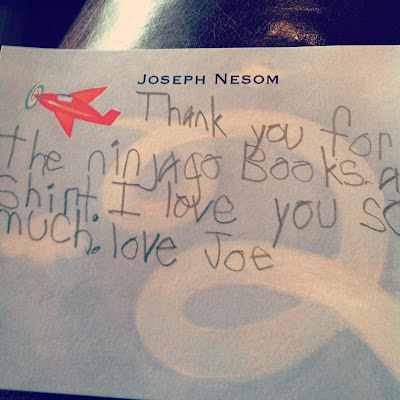 JOSEPH NESOM
Thank you for
the ninjago Books. a
Shirt. I love you so
much. love Joe